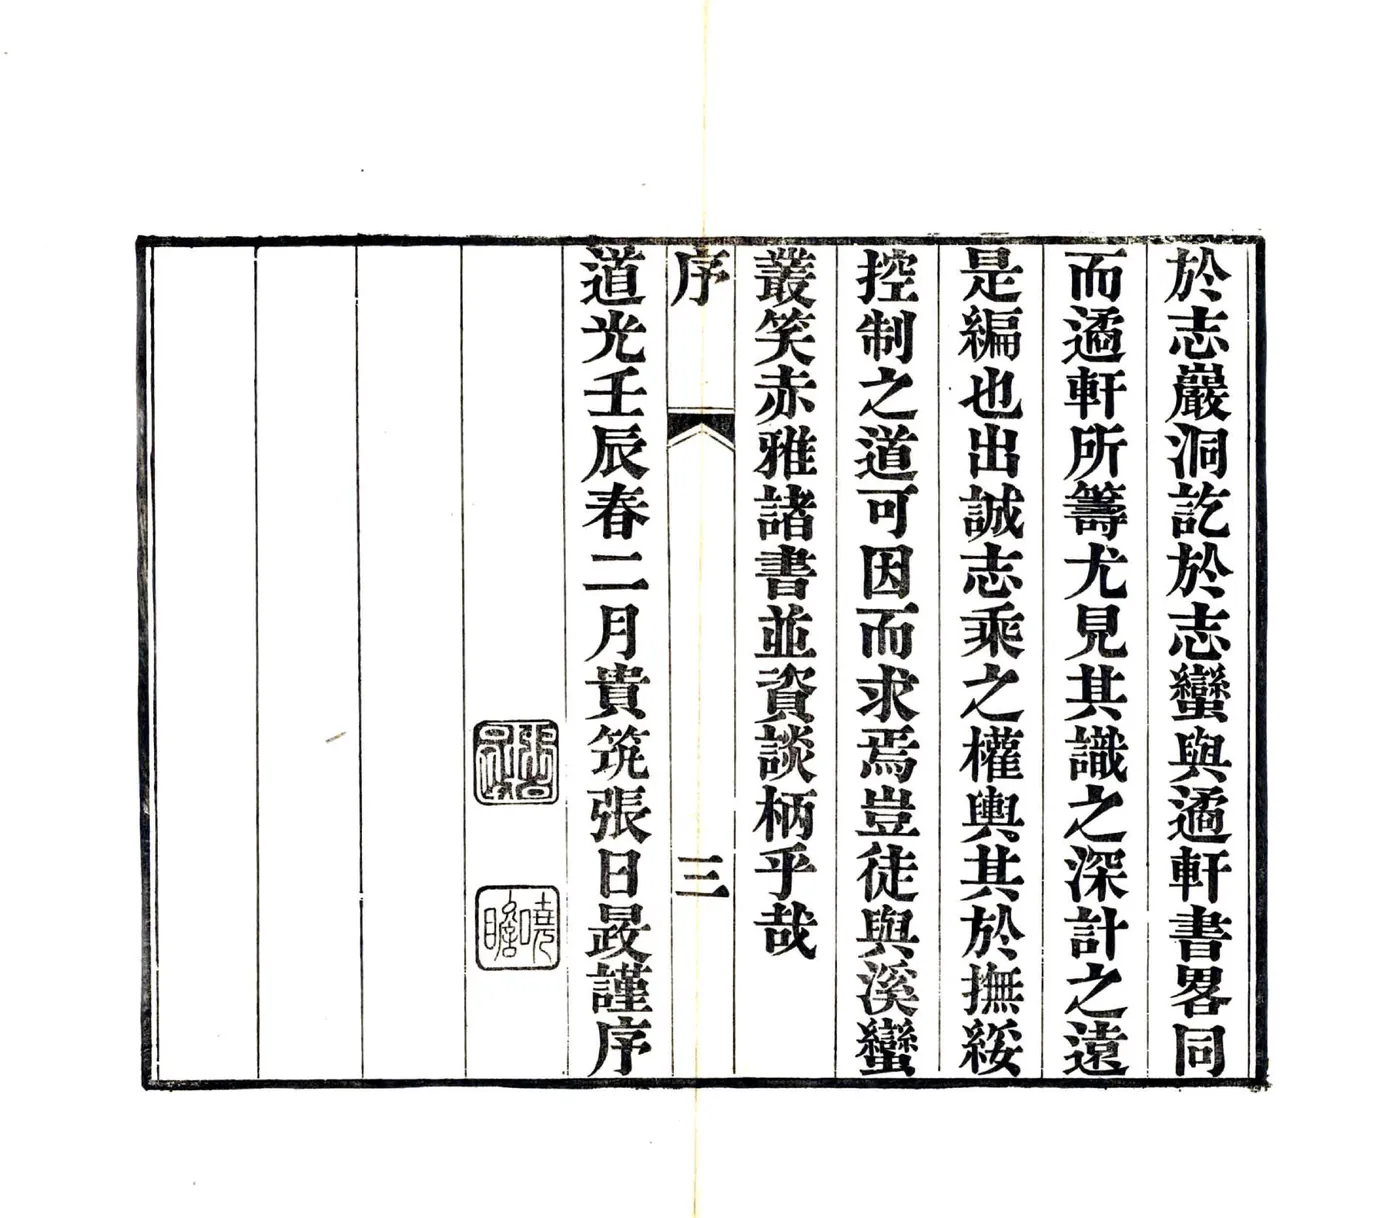 於志巖洞訖於志蠻與遹軒書畧同
而遹軒所籌尤見其識之深計之遠
是編也出誠志乘之權輿其於撫綏
控制之道可因而求焉豈徒與溪蠻
叢笑赤雅諸書並資談柄乎哉
序
三
道光壬辰春二月貴筑張日晸謹序
曉瞻